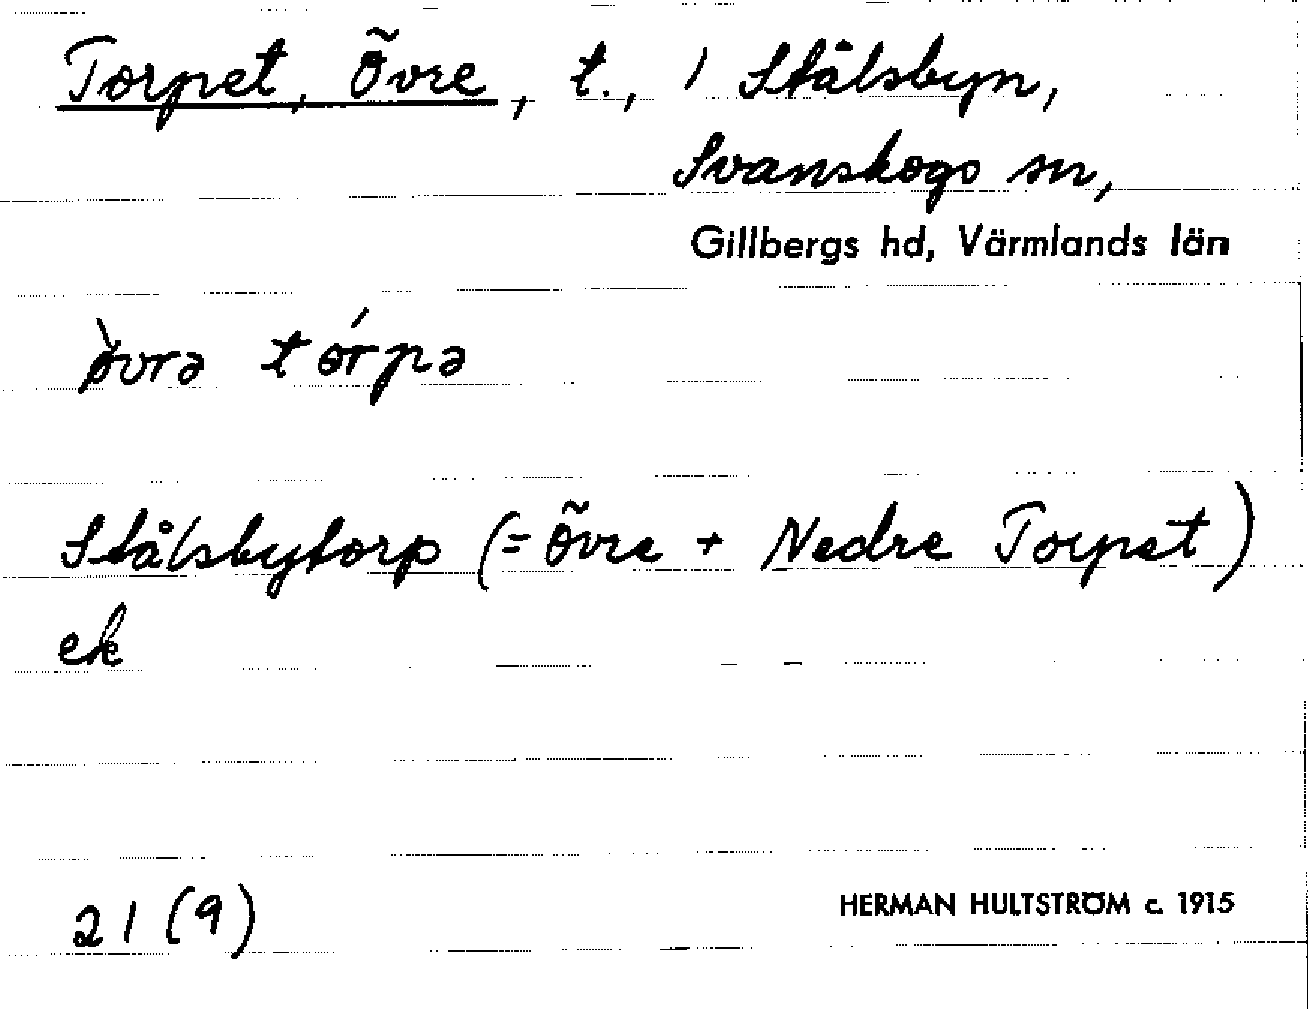 Torpet, Övre, t., i Stålsbyn,
Svanskogs sn,
Gillbergs hd, Värmlands län
ø̀vrə tórpə
Stålsbytorp (= Övre + Nedre Torpet)
ek
21 (9)
HERMAN HULTSTRÖM c. 1915